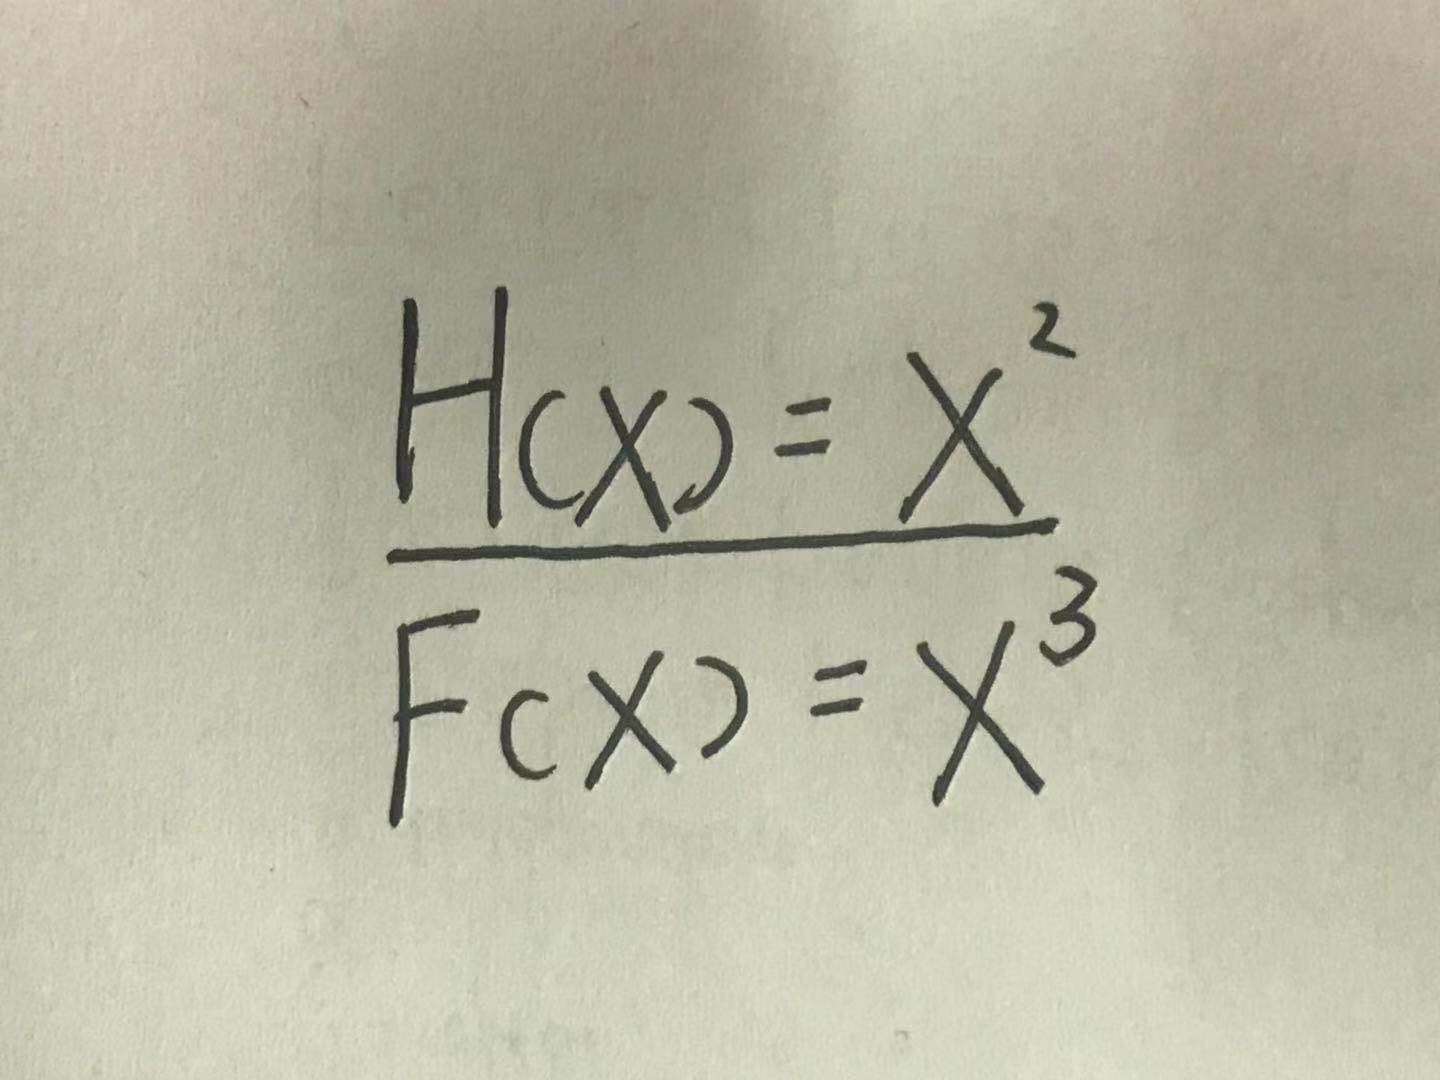 H(X) = X²
F(X) = X³